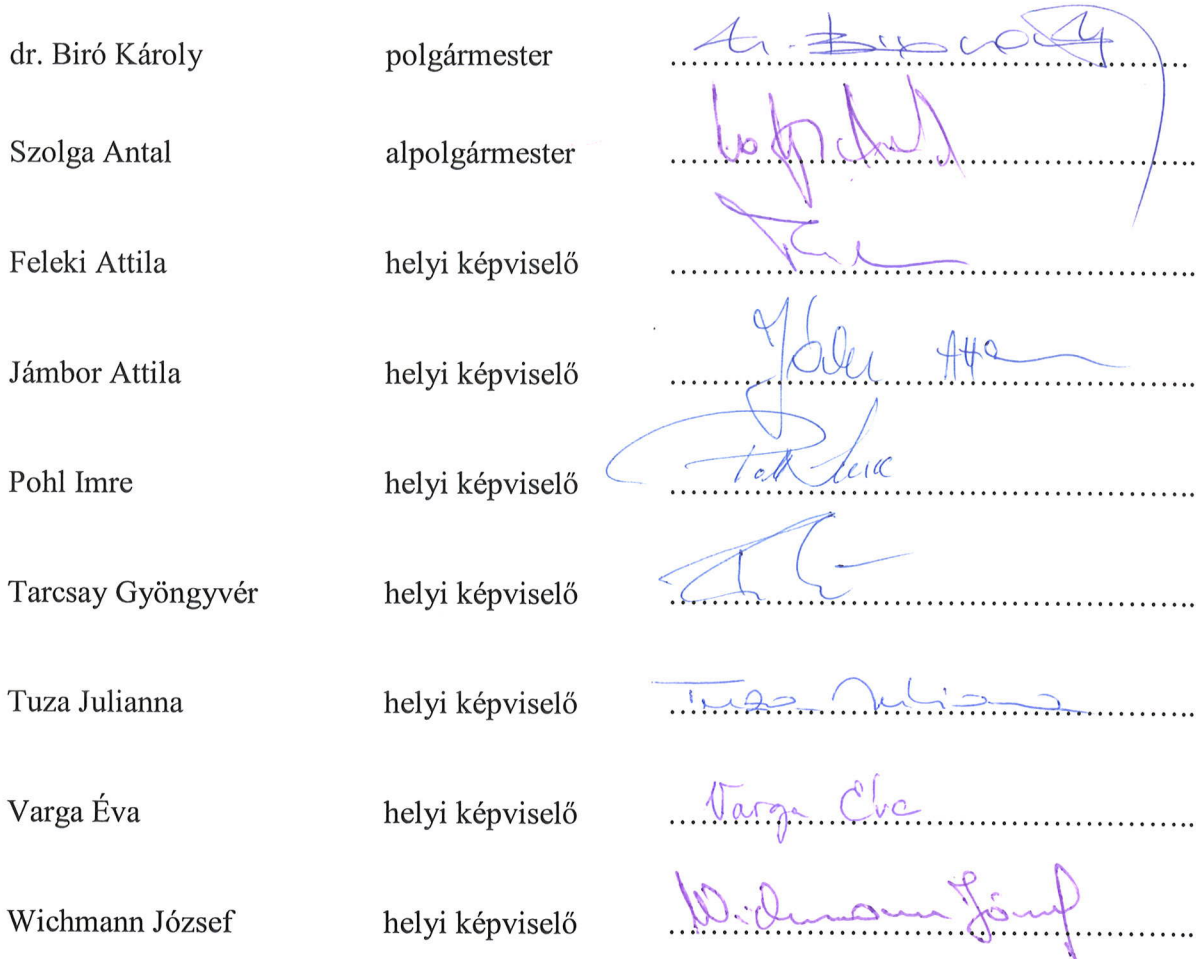 dr. Biró Károly polgármester dr. Biró Károly
Szolga Antal alpolgármester
Feleki Attila helyi képviselő
Jámbor Attila helyi képviselő
Pohl Imre helyi képviselő
Tarcsay Gyöngyvér helyi képviselő
Tuza Julianna helyi képviselő Tuza Julianna
Varga Éva helyi képviselő Varga Éva
Wichmann József helyi képviselő Wichmann József